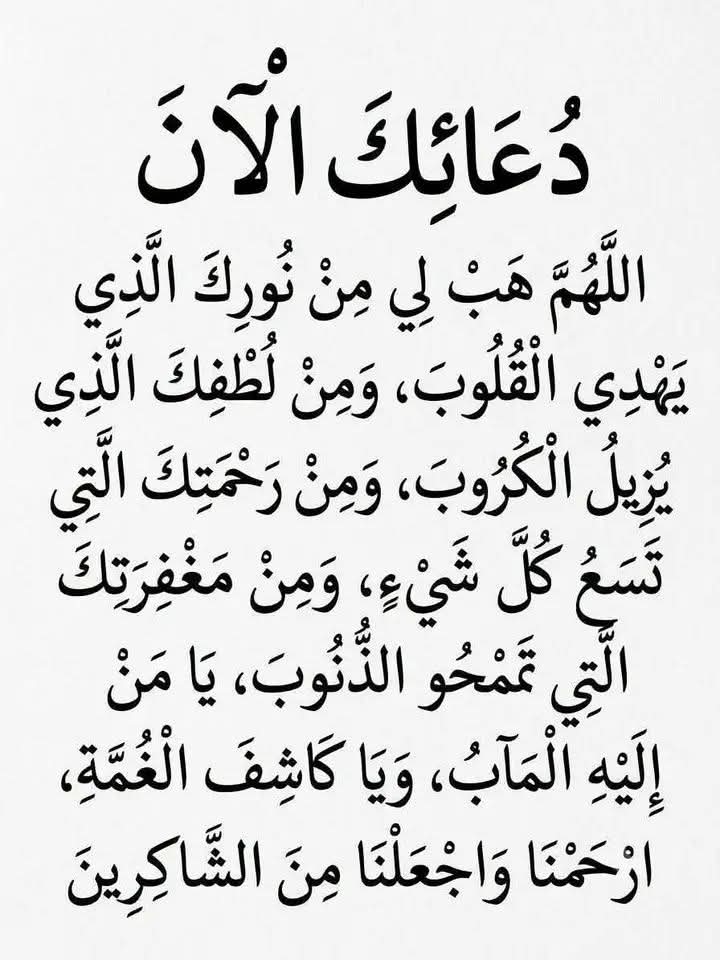 دُعَائِكَ الْآنَ
اللَّهُمَّ هَبْ لِي مِنْ نُورِكَ الَّذِي
يَهْدِي الْقُلُوبَ، وَمِنْ لُطْفِكَ الَّذِي
يُزِيلُ الْكُرُوبَ، وَمِنْ رَحْمَتِكَ الَّتِي
تَسَعُ كُلَّ شَيْءٍ، وَمِنْ مَغْفِرَتِكَ
الَّتِي تَمْحُو الذُّنُوبَ، يَا مَنْ
إِلَيْهِ الْمَآبُ، وَيَا كَاشِفَ الْغُمَّةِ،
ارْحَمْنَا وَاجْعَلْنَا مِنَ الشَّاكِرِينَ